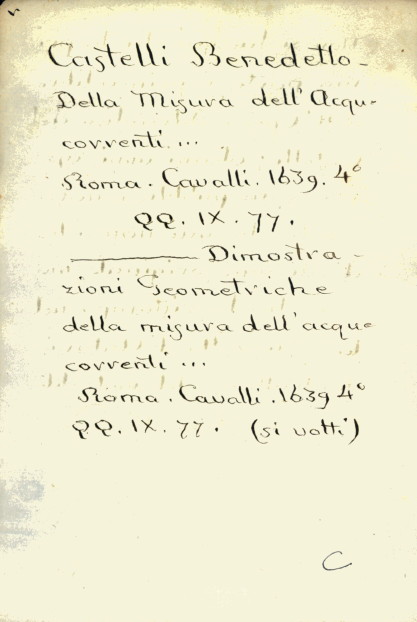 Castelli Benedetto -
Della Misura dell' Acqu-
correnti ...
Roma. Cavalli. 1639. 4°
QQ. IX. 77.
———— Dimostra-
zioni Geometriche
della misura dell'acque
correnti ...
Roma. Cavalli. 1639 4°
QQ. IX. 77. (si volti)
C